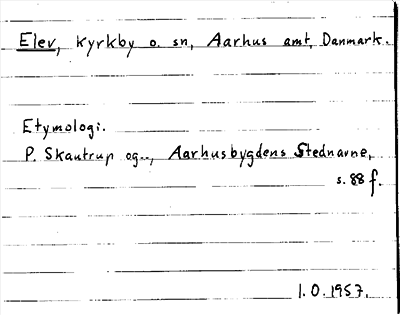 Elev, kyrkby o. sn, Aarhus amt, Danmark.
Etymologi.
P. Skautrup og.., Aarhusbygdens Stednavne,
s. 88 f.
1.0.1957.